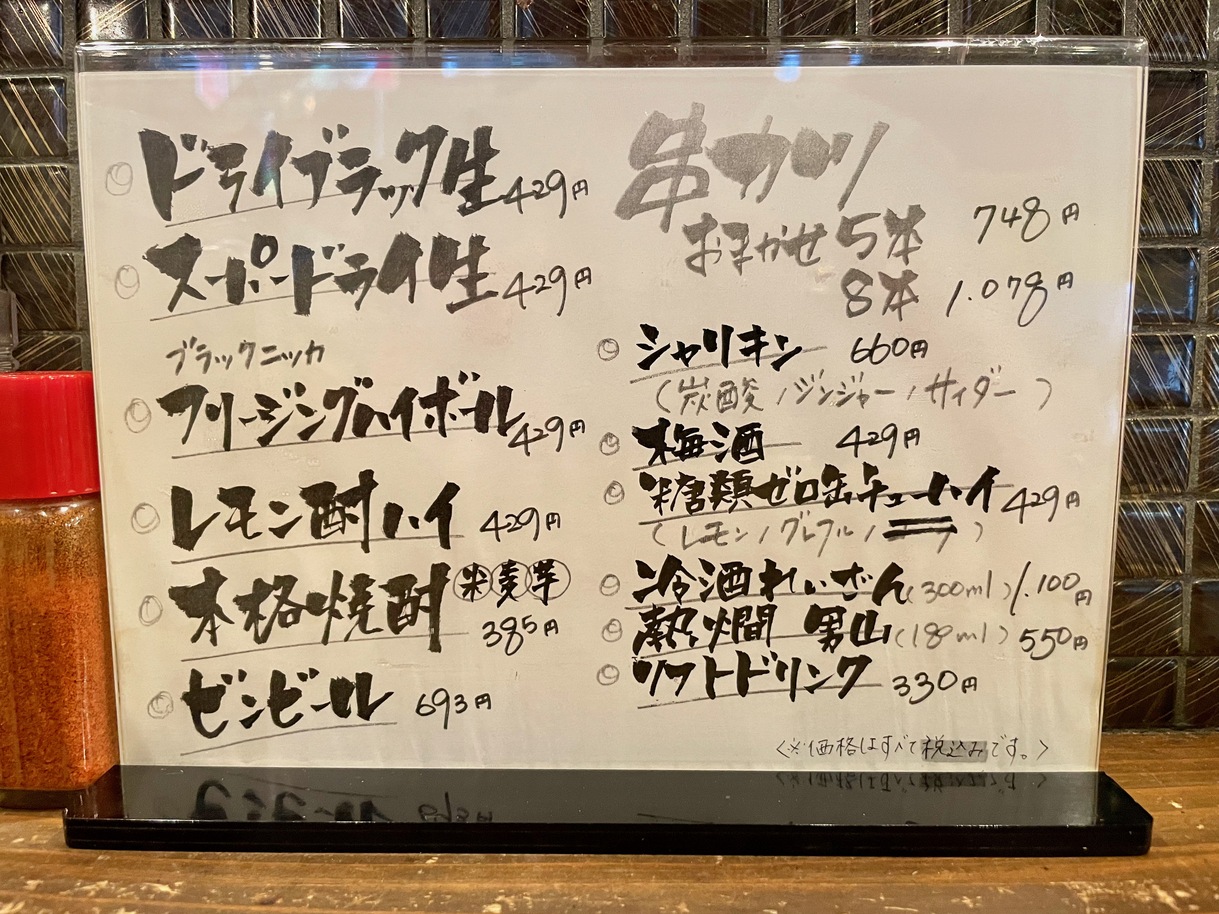 ◎ ドライブラック生 429円
◎ スーパードライ生 429円
ブラックニッカ
◎ フリージングハイボール 429円
◎ レモン酎ハイ 429円
◎ 本格焼酎 米 麦 芋 385円
◎ ビンビール 693円
串カツ
おまかせ 5本 748円
8本 1.078円
◎ シャリキン 660円
(炭酸/ジンジャー/サイダー)
◎ 梅酒 429円
◎ 糖類ゼロ缶チューハイ 429円
(レモン/グレフル/
◎ 冷酒れいざん(300ml) 1.100円
◎ 熱燗 男山(180ml) 550円
◎ ソフトドリンク 330円
<※価格はすべて税込みです。>